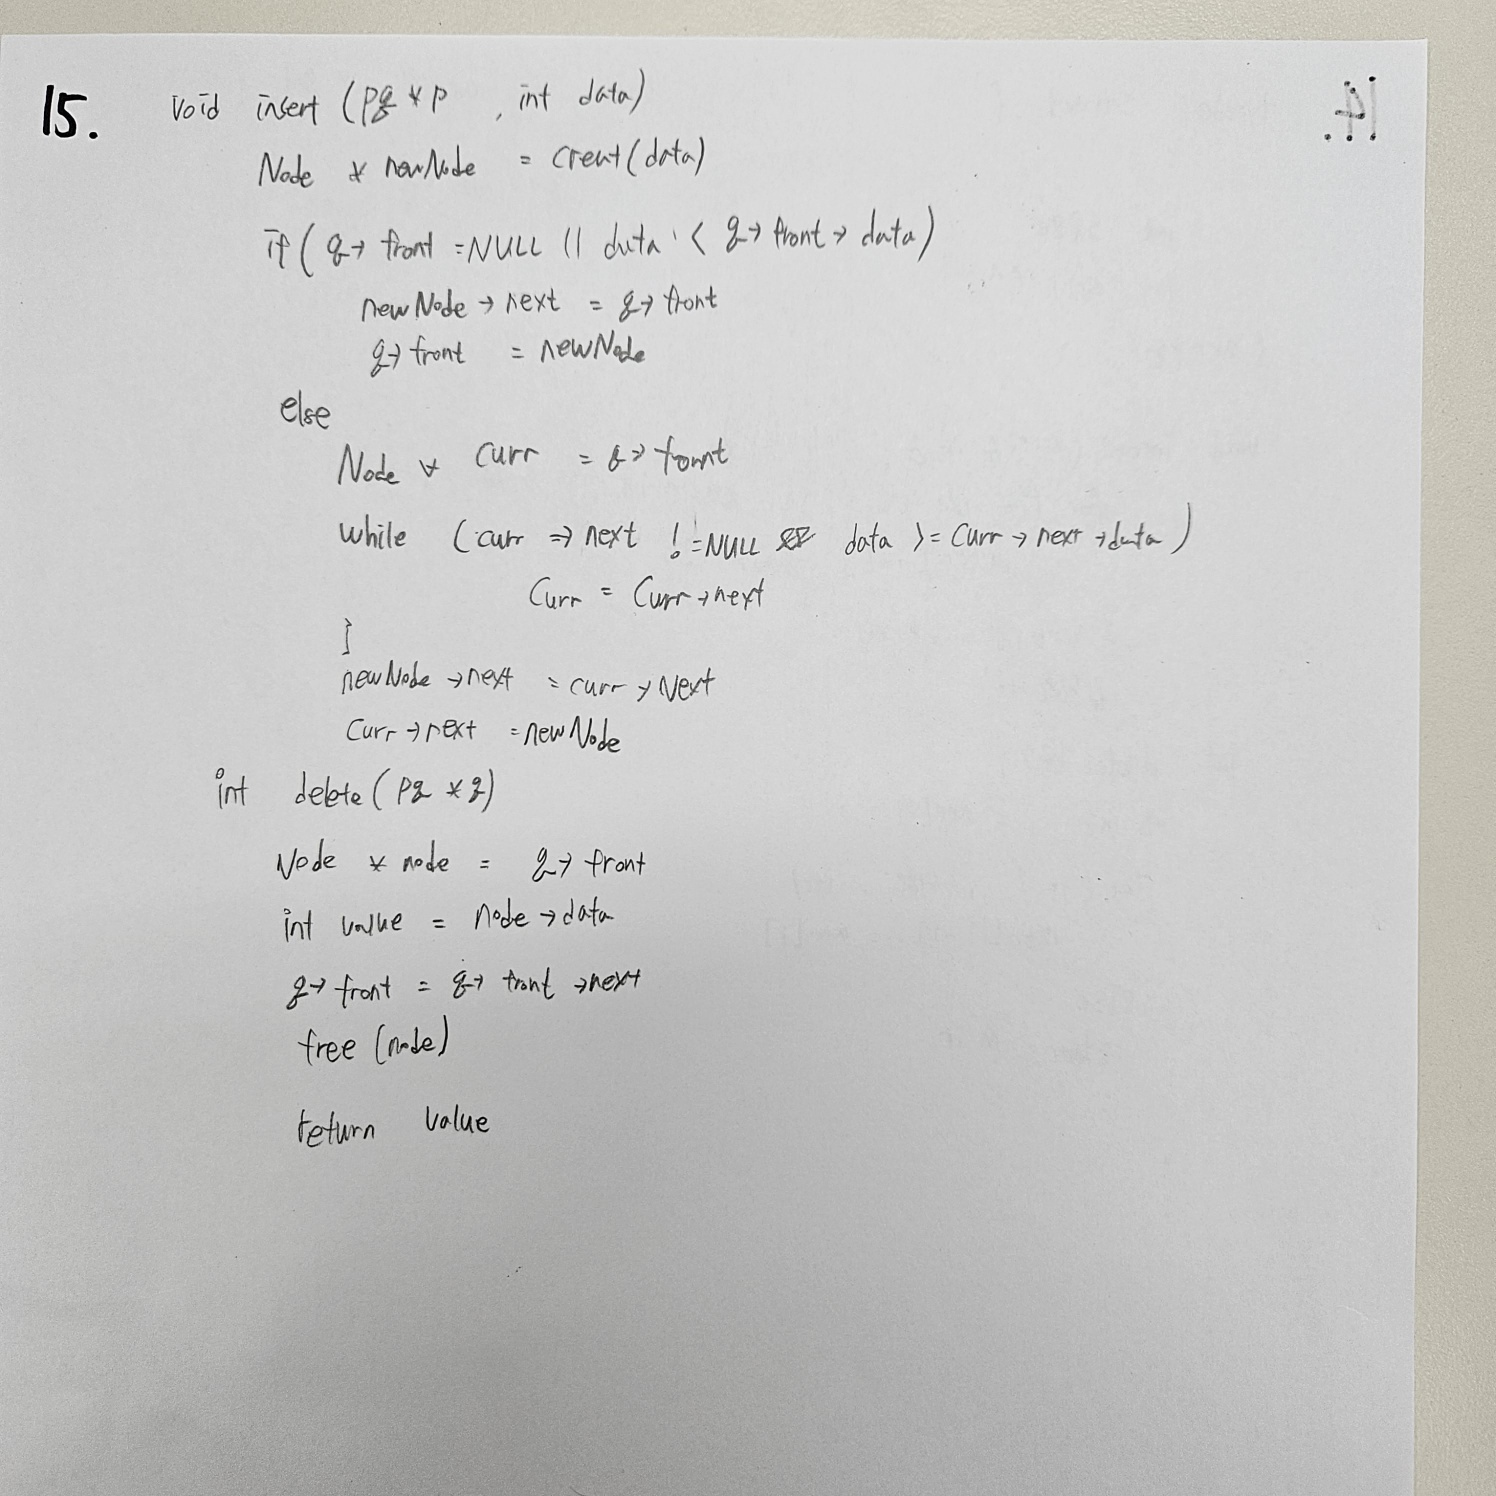 15.
void insert (pq *p , int data)
Node * newNode = creat(data)
if ( q→ front =NULL || data < q→ front → data)
newNode → next = q→ front
q→ front = newNode
else
Node * curr = q→ fornt
while (curr → next != NULL && data >= curr → next → data)
Curr = Curr → next
}
newNode → next = curr → Next
Curr → next = newNode
int delete (pq *q)
Node * node = q→ front
int value = node → data
q→ front = q→ front → next
free (node)
return value
14.